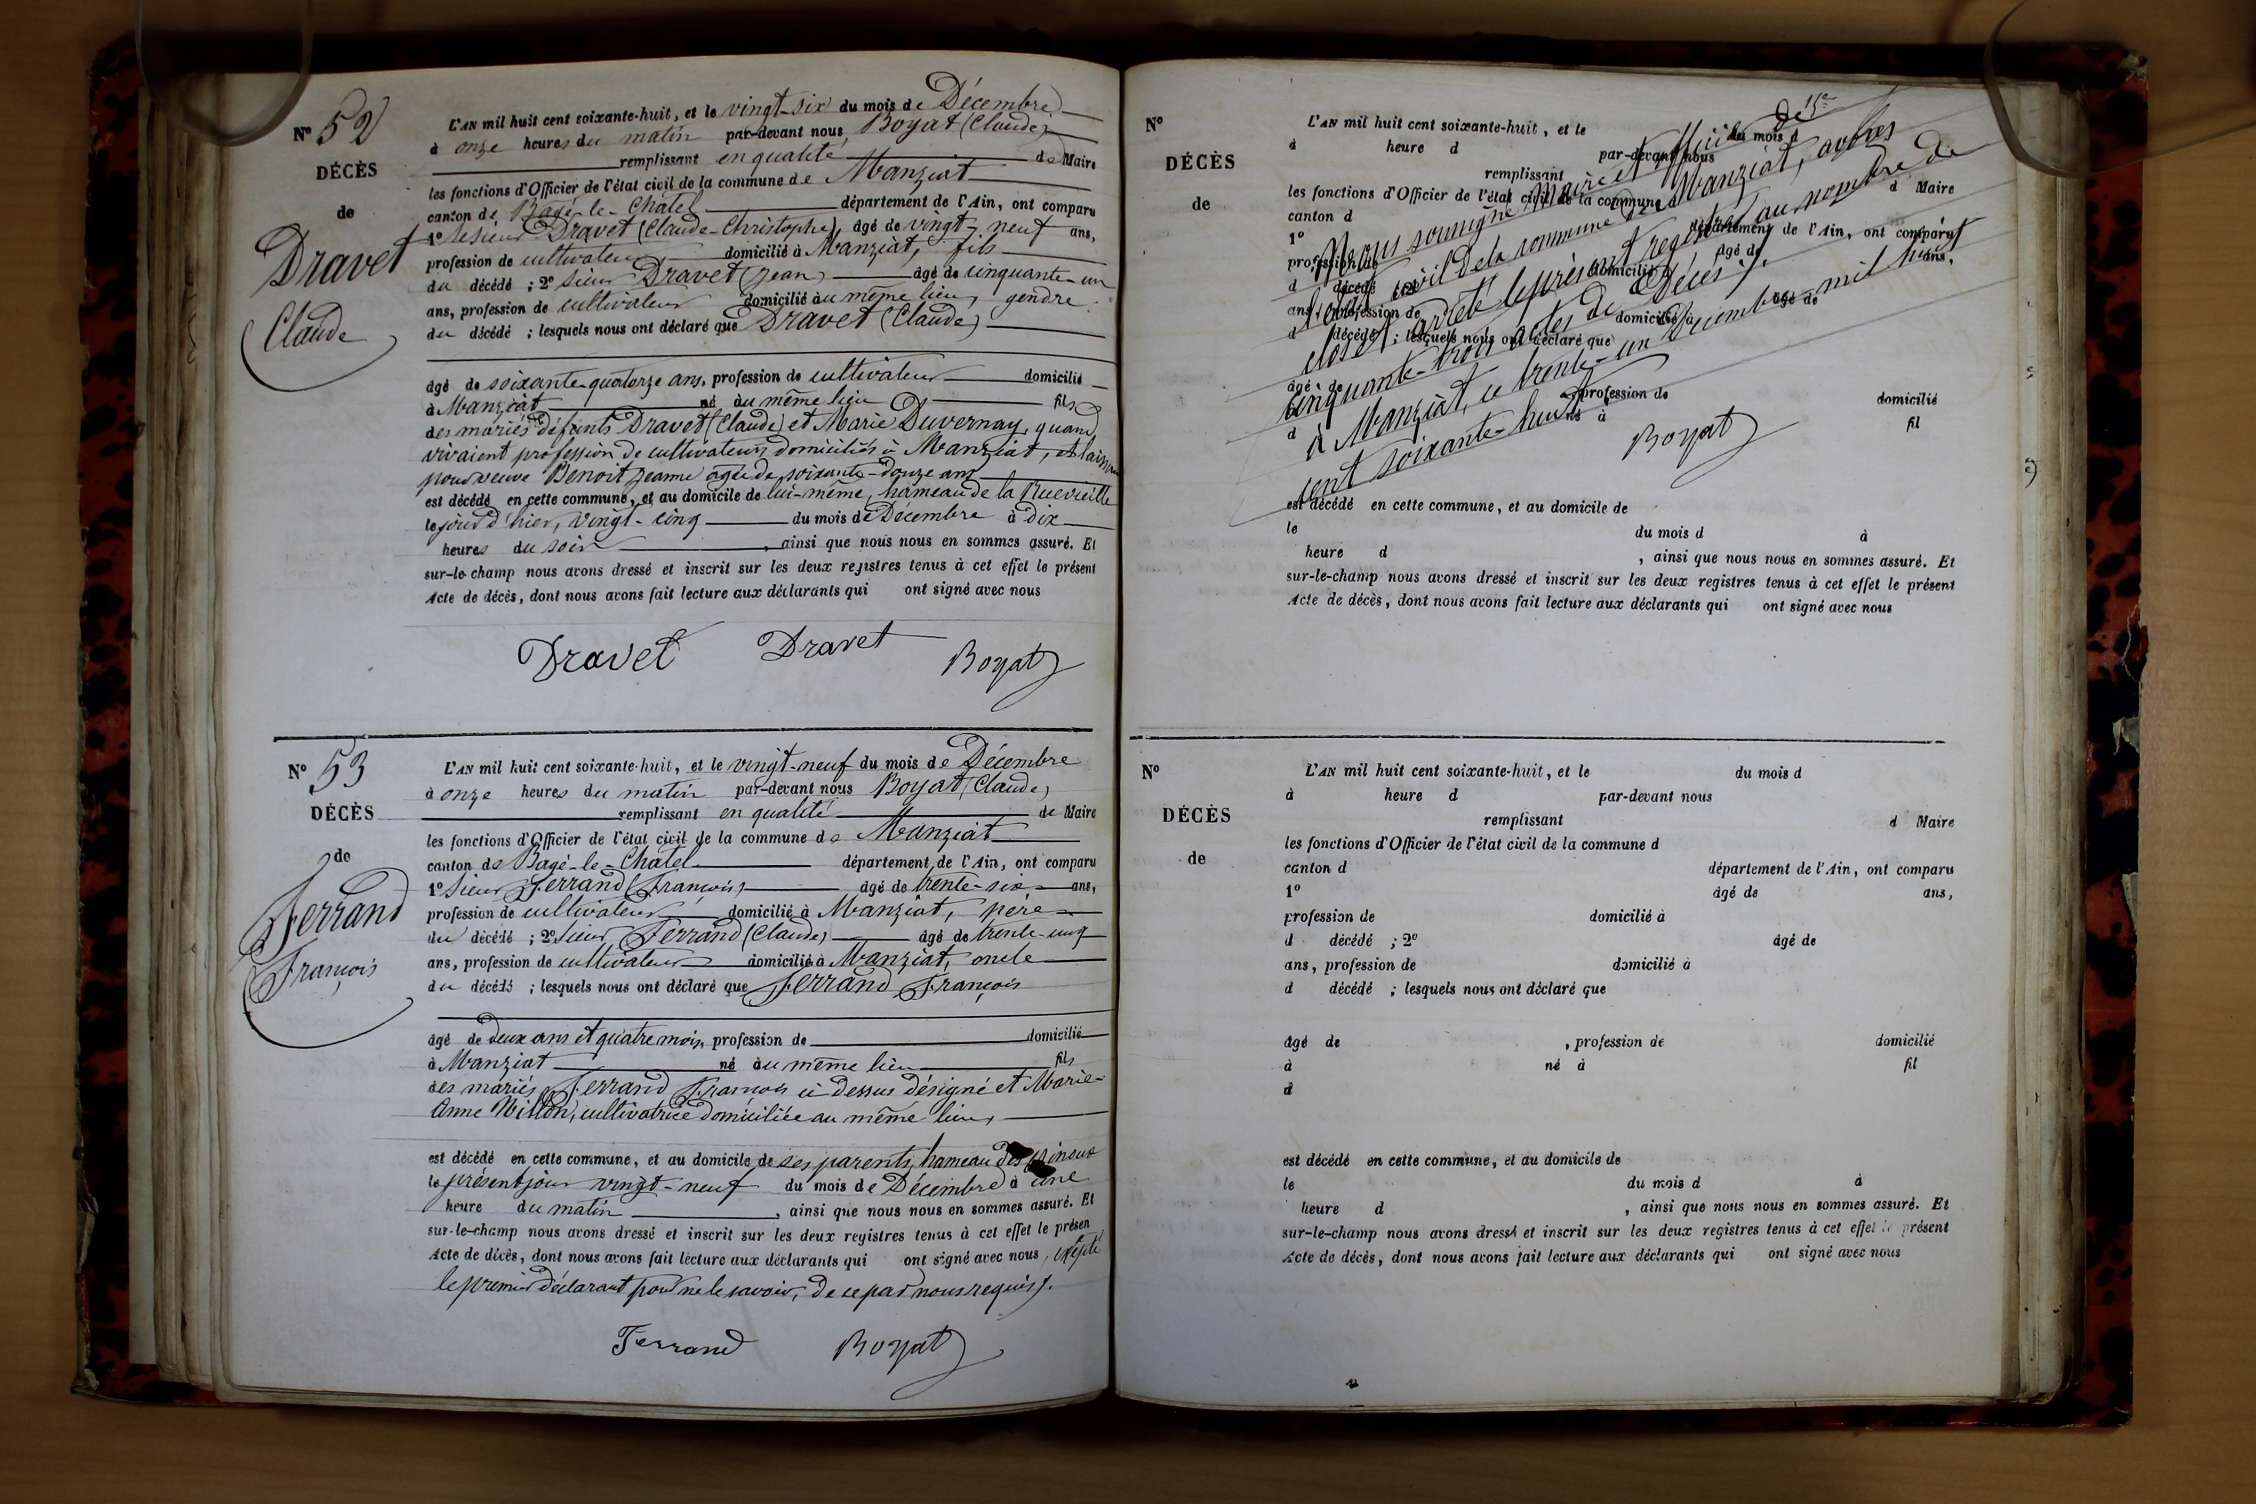 N° 52
DÉCÈS
de
Dravet
Claude
L'AN mil huit cent soixante-huit, et le vingt-six du mois de Décembre
à onze heures du matin par-devant nous Boyat (Claude)
remplissant en qualité de Maire
les fonctions d'Officier de l'état civil de la commune de Manziat
canton de Bagé-le-Châtel département de l'Ain, ont comparu
1° le sieur Dravet (Claude-Christophe), âgé de vingt-neuf ans,
profession de cultivateur domicilié à Manziat, fils
du décédé ; 2° sieur Dravet (Jean) âgé de cinquante-un
ans, profession de cultivateur domicilié au même lieu, gendre
du décédé ; lesquels nous ont déclaré que Dravet (Claude)
âgé de soixante-quatorze ans, profession de cultivateur domicilié
à Manziat né au même lieu fils
des mariés défunts Dravet (Claude) et Marie Duvernay, quand
vivaient profession de cultivateurs domiciliés à Manziat, et laissant
pour veuve Benoit Jeanne âgée de soixante-douze ans
est décédé en cette commune, et au domicile de lui-même, hameau de la Ruevieille
le jour d'hier, vingt-cinq du mois de Décembre à dix
heures du soir, ainsi que nous nous en sommes assuré. Et
sur-le-champ nous avons dressé et inscrit sur les deux registres tenus à cet effet le présent
Acte de décès, dont nous avons fait lecture aux déclarants qui ont signé avec nous
Dravet Dravet Boyat
N° 53
DÉCÈS
de
Ferrand
François
L'AN mil huit cent soixante-huit, et le vingt-neuf du mois de Décembre
à onze heures du matin par-devant nous Boyat (Claude)
remplissant en qualité de Maire
les fonctions d'Officier de l'état civil de la commune de Manziat
canton de Bagé-le-Châtel département de l'Ain, ont comparu
1° Sieur Ferrand (François) âgé de trente-six ans,
profession de cultivateur domicilié à Manziat, père
du décédé ; 2° Sieur Ferrand (Claude) âgé de trente-cinq
ans, profession de cultivateur domicilié à Manziat, oncle
du décédé ; lesquels nous ont déclaré que Ferrand François
âgé de deux ans et quatre mois, profession de domicilié
à Manziat né au même lieu fils
des mariés Ferrand François ci dessus désigné et Marie-
Anne Nillon, cultivatrice domiciliée au même lieu,
est décédé en cette commune, et au domicile de ses parents, hameau des
le présent jour vingt-neuf du mois de Décembre à une
heure du matin, ainsi que nous nous en sommes assuré. Et
sur-le-champ nous avons dressé et inscrit sur les deux registres tenus à cet effet le présen
Acte de décès, dont nous avons fait lecture aux déclarants qui ont signé avec nous, excepté
le premier déclarant pour ne le savoir, de ce par nous requis.
Ferrand Boyat
N°
DÉCÈS
de
L'AN mil huit cent soixante-huit, et le du mois d
à heure d par-devant nous
remplissant d Maire
les fonctions d'Officier de l'état civil de la commune d
canton d département de l'Ain, ont comparu
1° âgé de ans,
profession de domicilié à
d décédé ; 2° âgé de
ans, profession de domicilié à
d décédé ; lesquels nous ont déclaré que
âgé de , profession de domicilié
à né à fil
d
Nous soussigné Maire et Officier de
l'état civil de la commune de Manziat, avons
clos et arrêté le présent registre au nombre de
Cinquante-trois actes de Décès.
à Manziat, ce trente-un Décembre mil huit
cent soixante-huit
Boyat
est décédé en cette commune, et au domicile de
le du mois d à
heure d , ainsi que nous nous en sommes assuré. Et
sur-le-champ nous avons dressé et inscrit sur les deux registres tenus à cet effet le présent
Acte de décès, dont nous avons fait lecture aux déclarants qui ont signé avec nous
N°
DÉCÈS
de
L'AN mil huit cent soixante-huit, et le du mois d
à heure d par-devant nous
remplissant d Maire
les fonctions d'Officier de l'état civil de la commune d
canton d département de l'Ain, ont comparu
1° âgé de ans,
profession de domicilié à
d décédé ; 2° âgé de
ans, profession de domicilié à
d décédé ; lesquels nous ont déclaré que
âgé de , profession de domicilié
à né à fil
d
est décédé en cette commune, et au domicile de
le du mois d à
heure d , ainsi que nous nous en sommes assuré. Et
sur-le-champ nous avons dressé et inscrit sur les deux registres tenus à cet effet le présent
Acte de décès, dont nous avons fait lecture aux déclarants qui ont signé avec nous